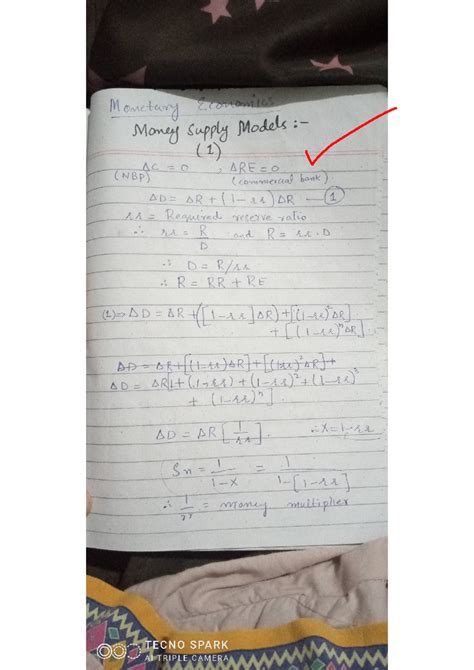 Monetary Economics
Money Supply Models :-
(1)
ΔC = 0 , ΔRE = 0
(NBP) (commercial bank)
ΔD = ΔR + (1-rr)ΔR — (1)
rr = Required reserve ratio
∴ rr = R/D and R = rr·D
∴ D = R/rr
∴ R = RR + RE
(1)⇒ ΔD = ΔR + ([1-rr]ΔR) + [(1-rr)²ΔR]
+ [(1-rr)ⁿΔR]
ΔD = ΔR + [(1-rr)ΔR] + [(1-rr)²] +
ΔD = ΔR[1 + (1-rr) + (1-rr)² + (1-rr)³
+ (1-rr)ⁿ]
ΔD = ΔR [1/rr] . ∴ X = 1-rr
Sn = 1/1-X = 1/1-[1-rr]
∴ 1/rr = money multiplier
TECNO SPARK
AI TRIPLE CAMERA